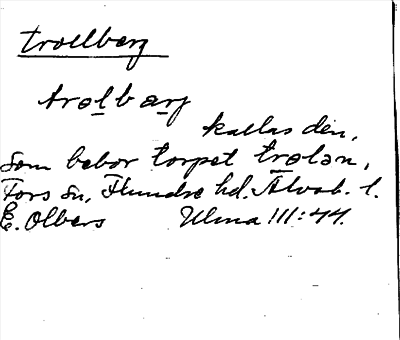 trollberg
trolbarj
kallas den,
som bebor torpet trolan,
Fors sn, Flundre hd. Älvsb. l.
E. Olbers Ulma 111:44.